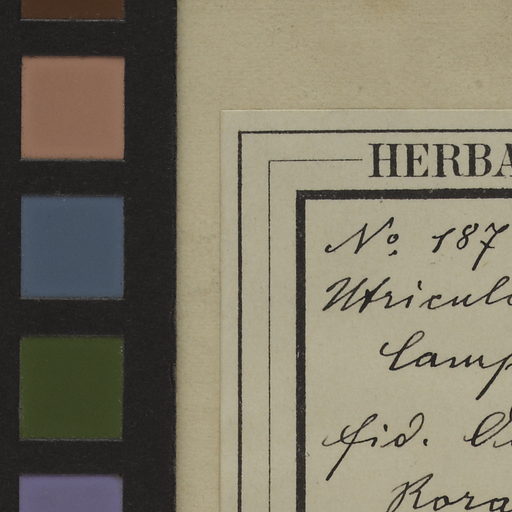 HERBA
No. 187
Utricula
Camp
fid.
Rora